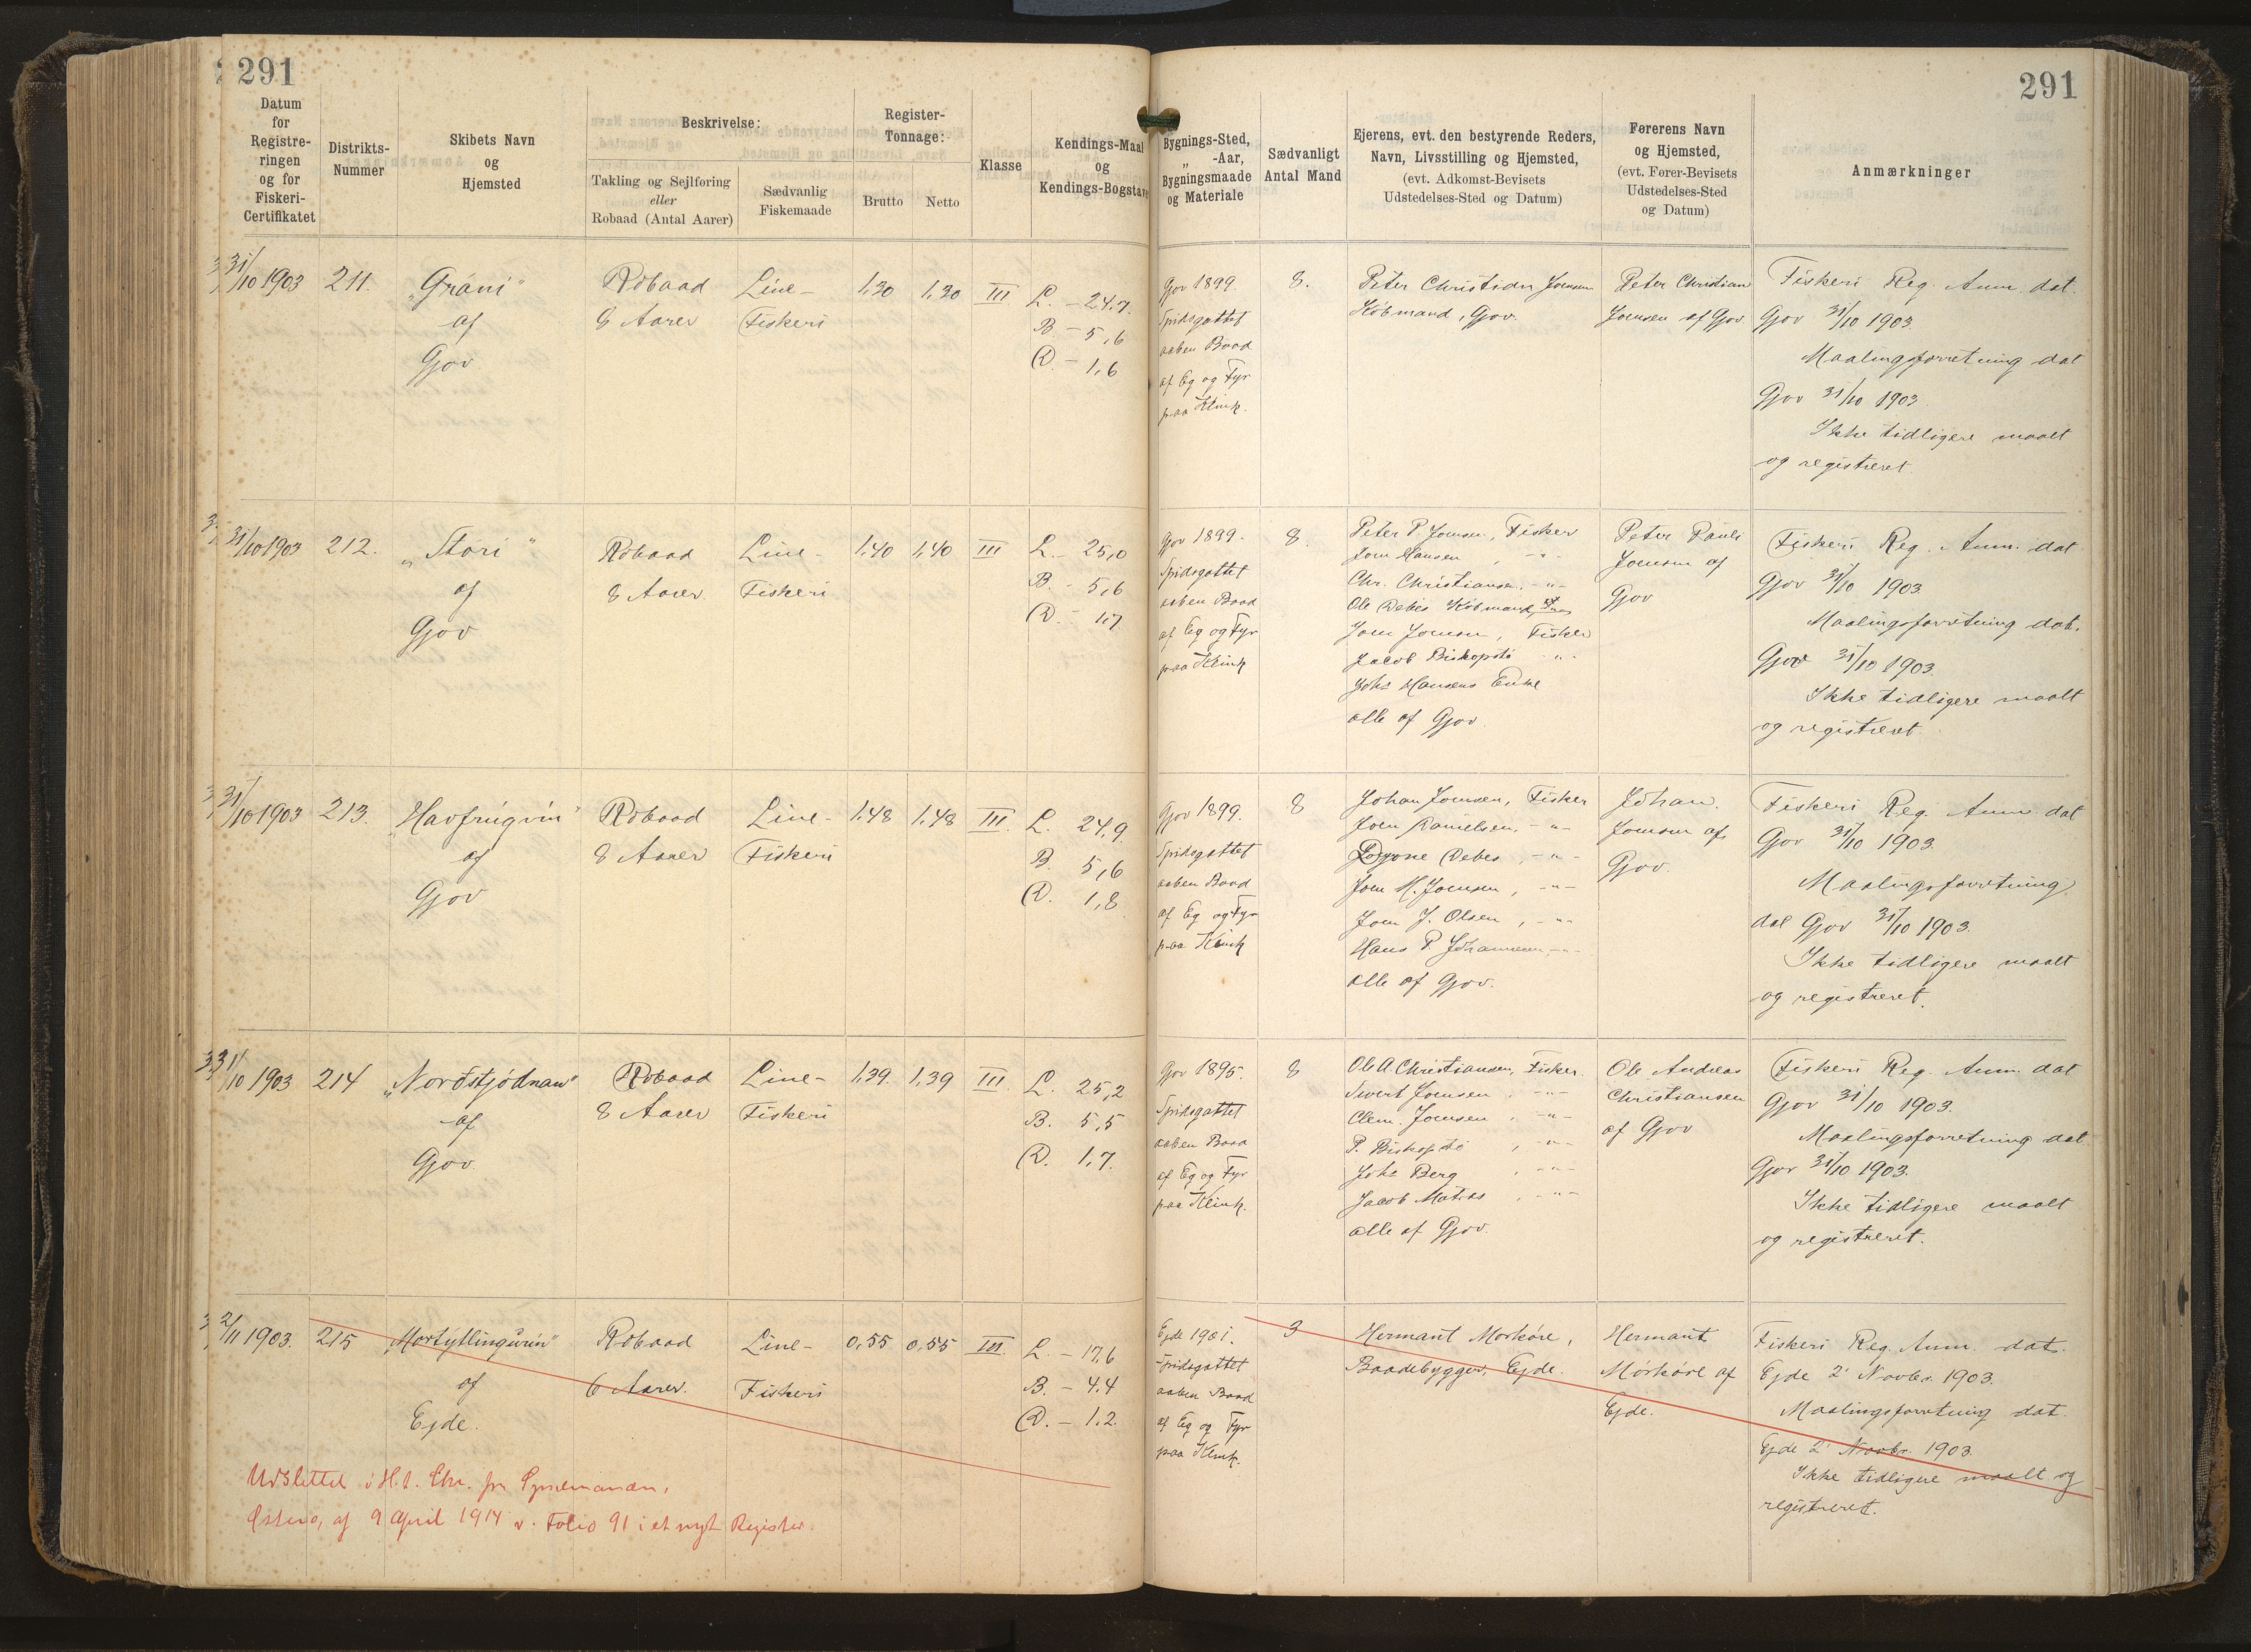 291
291
Datum
for
Registre-
ringen
og for
Fiskeri-
Certifikatet
Distrikts-
Nummer
Skibets Navn
og
Hjemsted
Beskrivelse:
Takling og Sejlføring
eller
Robaad (Antal Aarer)
Sædvanlig
Fiskemaade
Register-
Tonnage:
Brutto
Netto
Klasse
Kendings-Maal
og
Kendings-Bogstav
Bygnings-Sted,
„ -Aar,
Bygningsmaade
og Materiale
Sædvanligt
Antal Mand
Ejerens, evt. den bestyrende Reders,
Navn, Livsstilling og Hjemsted,
(evt. Adkomst-Bevisets
Udstedelses-Sted og Datum)
Førerens Navn
og Hjemsted,
(evt. Fører-Bevisets
Udstedelses-Sted
og Datum)
Anmærkninger
31/10 1903
211.
„Gráni“
af
Gjov
Robaad
8 Aarer
Line-
Fiskeri
1,30
1,30
III
L. - 24,7.
B - 5,6
D. - 1,6
Gjov 1899.
Spidsgattet
aaben Baad
af Eg og Fyr
paa Klink.
8.
Peter Christian Joensen
Købmand, Gjov.
Peter Christian
Joensen af Gjov
Fiskeri Reg. Anm. dat.
Gjov 31/10 1903.
Maalingsforretning dat
Gjov 31/10 1903
Ikke tidligere maalt
og registreret.
31/10 1903
212.
„Stóri“
af
Gjov
Robaad
8 Aarer.
Line-
Fiskeri
1,40
1,40
III
L. - 25,0
B. - 5,6
D. - 1,7
Gjov 1899.
Spidsgattet
aaben Baad
af Eg og Fyr
paa Klink
8.
Peter P. Joensen, Fisker
Joen Hansen, -„-
Chr. Christiansen, -„-
Ole Debes Købmand,
Joen Joensen, Fisker
Jacob Biskopstø -„-
Johs Hansens Enke
alle af Gjov.
Peter Pauli
Joensen af
Gjov
Fiskeri Reg. Anm. dat
Gjov 31/10 1903.
Maalingsforretning dat.
Gjov 31/10 1903.
Ikke tidligere maalt
og registreret.
31/10 1903
213.
„Havfrúgvin“
af
Gjov
Robaad
8 Aarer
Line-
Fiskeri
1,48
1,48
III.
L. 24,9.
B. 5,6
D. 1,8
Gjov 1899.
Spidsgattet
aaben Baad
af Eg og Fyr
paa Klink
8
Johan Joensen, Fisker
Joen Danielsen, -„-
Debes, -„-
Joen M. Joensen, -„-
Joen J. Olsen, -„-
Hans P. Johannesen, -„-
alle af Gjov.
Johan
Joensen af
Gjov.
Fiskeri Reg. Anm. dat
Gjov 31/10 1903.
Maalingsforretning
dat Gjov 31/10 1903.
Ikke tidligere maalt
og registreret.
31/10 1903
214
„Norðstjódnan“
af
Gjov.
Robaad
8 Aarer
Line-
Fiskeri
1,39.
1,39
III.
L. 25,2
B. 5,5
D. 1,7.
Gjov 1895.
Spidsgattet
aaben Baad
af Eg og Fyr
paa Klink.
8
Ole A Christiansen, Fisker.
Sivert Joensen, -„-
Clem. Joensen, -„-
P. Biskopstø, -„-
Johs Berg, -„-
Jacob Matras, -„-
alle af Gjov.
Ole Andreas
Christiansen
af Gjov
Fiskeri Reg. Anm. dat
Gjov 31/10 1903.
Maalingsforretning dat
Gjov 31/10 1903.
Ikke tidligere maalt
og registreret.
2/11 1903.
215
„Mortýtlingurin“
af
Ejde.
Robaad
6 Aarer.
Line-
Fiskeri
0,55
0,55
III.
L. - 17,6
B. - 4,4
D. - 1,2.
Ejde 1901.
Spidsgattet
aaben Baad
af Eg og Fyr
paa Klink.
3
Hermant Morkøre,
Baadebygger, Ejde.
Hermant
Mørkøre af
Ejde.
Fiskeri Reg. Anm. dat.
Ejde 2' Novbr. 1903.
Maalingsforretning dat.
Ejde 2' Novbr. 1903.
Ikke tidligere maalt og
registreret.
Udslettet i H. t. Skr. fra Sysselmanden,
Østerø, af 9 April 1914 v. Folio 91 i et nyt Register.